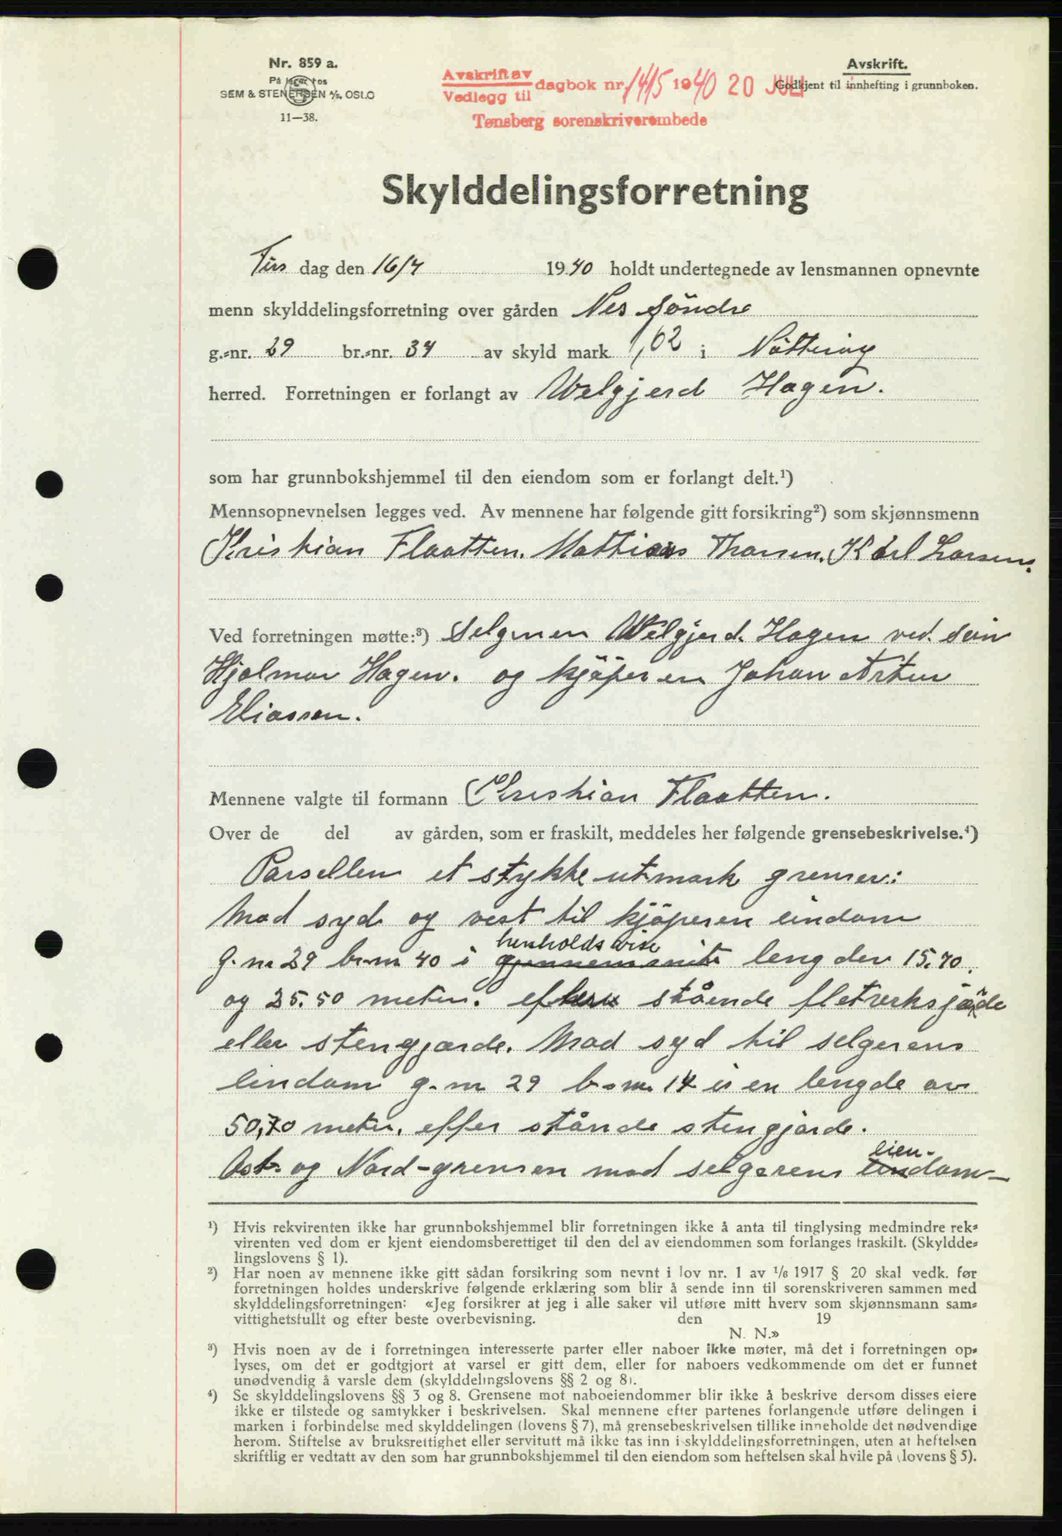 Nr. 859 a.
På lager hos
SEM & STENERSEN A/S, OSLO
11—38.
Avskrift av
Vedlegg til
dagbok nr. 1415 1940 20 JULI
Tønsberg sorenskriverembede
Avskrift.
Godkjent til innhefting i grunnboken.
Skylddelingsforretning
Tirs dag den 16/7 1940 holdt undertegnede av lensmannen opnevnte
menn skylddelingsforretning over gården Nes söndre
g.-nr. 29 br.-nr. 34 av skyld mark 1,02 i Nötteröy
herred. Forretningen er forlangt av Welgjerd Hagen.
som har grunnbokshjemmel til den eiendom som er forlangt delt.¹)
Mennsopnevnelsen legges ved. Av mennene har følgende gitt forsikring²) som skjønnsmenn
Kristian Flaatten. Mathias Thorsen. Karl Larsen.
Ved forretningen møtte:³) Selgeren Welgjerd. Hagen ved. sön
Hjalmar Hagen. og kjöperen Johan Artur
Eliassen.
Mennene valgte til formann Kristian Flaatten.
Over de del av gården, som er fraskilt, meddeles her følgende grensebeskrivelse.⁴)
Parsellen et stykke utmark grenser:
Mod syd og vest til kjöperen eindom
henholdsvise
g.nr 29 br.nr 40 i lengder 15.70.
og 25.50 meter. efter stående fletverksjærde
eller stengjærde. Mod syd til selgerens
eindom g.nr 29 b.nr. 14 i en lengde av
50,70 meter. effer stånde stengjærde.
eien-
Ost. og Nord-grensen mod selgerens eindom-
¹) Hvis rekvirenten ikke har grunnbokshjemmel blir forretningen ikke å anta til tinglysing medmindre rek-
virenten ved dom er kjent eiendomsberettiget til den del av eiendommen som forlanges fraskilt. (Skyldde-
lingslovens § 1).
²) Har noen av mennene ikke gitt sådan forsikring som nevnt i lov nr. 1 av 1/6 1917 § 20 skal vedk. før
forretningen holdes underskrive følgende erklæring som blir å sende inn til sorenskriveren sammen med
skylddelingsforretningen: «Jeg forsikrer at jeg i alle saker vil utføre mitt hverv som skjønnsmann sam-
vittighetsfullt og efter beste overbevisning. den 19
N. N.»
³) Hvis noen av de i forretningen interesserte parter eller naboer ikke møter, må det i forretningen op-
lyses, om det er godtgjort at varsel er gitt dem, eller for naboers vedkommende om det er funnet
unødvendig å varsle dem (skylddelingslovens §§ 2 og 8).
⁴) Se skylddelingslovens §§ 3 og 8. Grensene mot naboeiendommer blir ikke å beskrive dersom disses eiere
ikke er tilstede og samtykker i beskrivelsen. Skal mennene efter partenes forlangende utføre delingen i
marken i forbindelse med skylddelingen (lovens § 7), må grensebeskrivelsen tillike inneholde det nødvendige
herom. Stiftelse av bruksrettighet eller servitutt må ikke tas inn i skylddelingsforretningen, uten at heftelsen
skriftlig er vedtatt av den som har grunnbokshjemmel til den eiendom som heftelsen skal hvile på (lovens § 5).